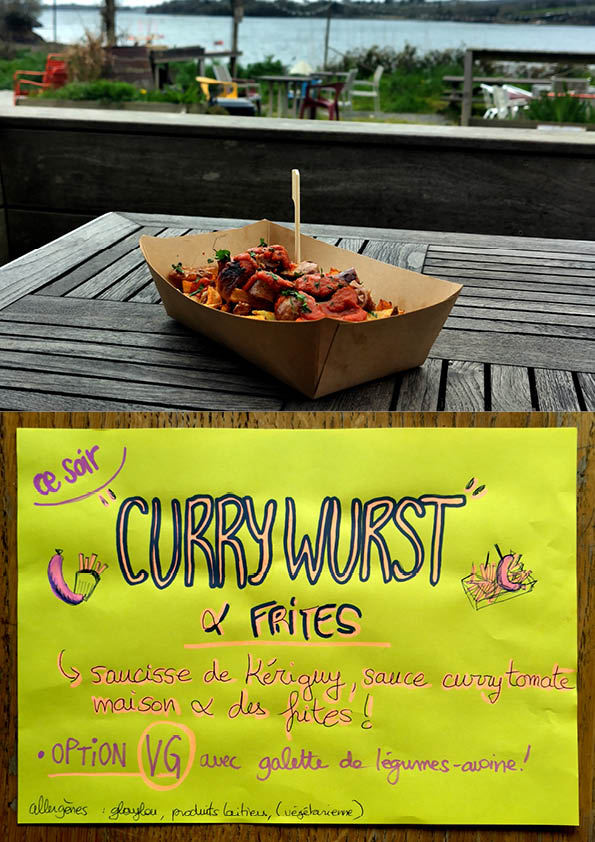 ce soir
"CURRYWURST"
& FRITES
↳ saucisse de Kériguy, sauce curry tomate
maison & des frites !
• OPTION VG avec galette de légumes-avoine !
allergènes : , produits laitiers, (végétarienne)